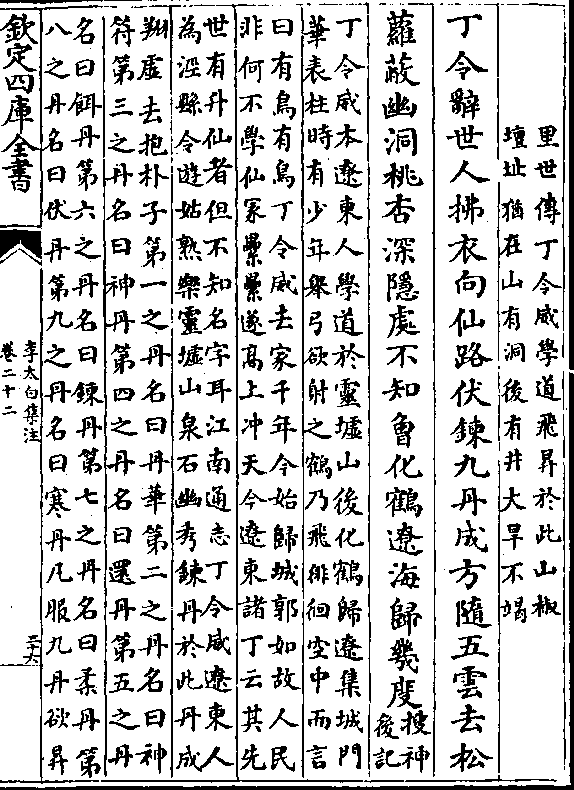 里世傳丁令威學道飛昇於此山椒
壇址猶在山有洞後有井大旱不竭
丁令辭世人拂衣向仙路伏鍊九丹成方隨五雲去松
蘿蔽幽洞桃杏深隱處不知曾化鶴遼海歸幾度
搜神
後記
丁令威本遼東人學道於靈墟山後化鶴歸遼集城門
華表柱時有少年舉弓欲射之鶴乃飛徘徊空中而言
曰有鳥有鳥丁令威去家千年今始歸城郭如故人民
非何不學仙冢纍纍遂高上冲天今遼東諸丁云其先
世有升仙者但不知名字耳江南通志丁令威遼東人
為涇縣令遊姑熟樂靈墟山泉石幽秀鍊丹於此丹成
翔虛去抱朴子第一之丹名曰丹華第二之丹名曰神
符第三之丹名曰神丹第四之丹名曰還丹第五之丹
名曰餌丹第六之丹名曰鍊丹第七之丹名曰柔丹第
八之丹名曰伏丹第九之丹名曰寒丹凡服九丹欲昇
欽定四庫全書
李太白集注
卷二十二
三十六